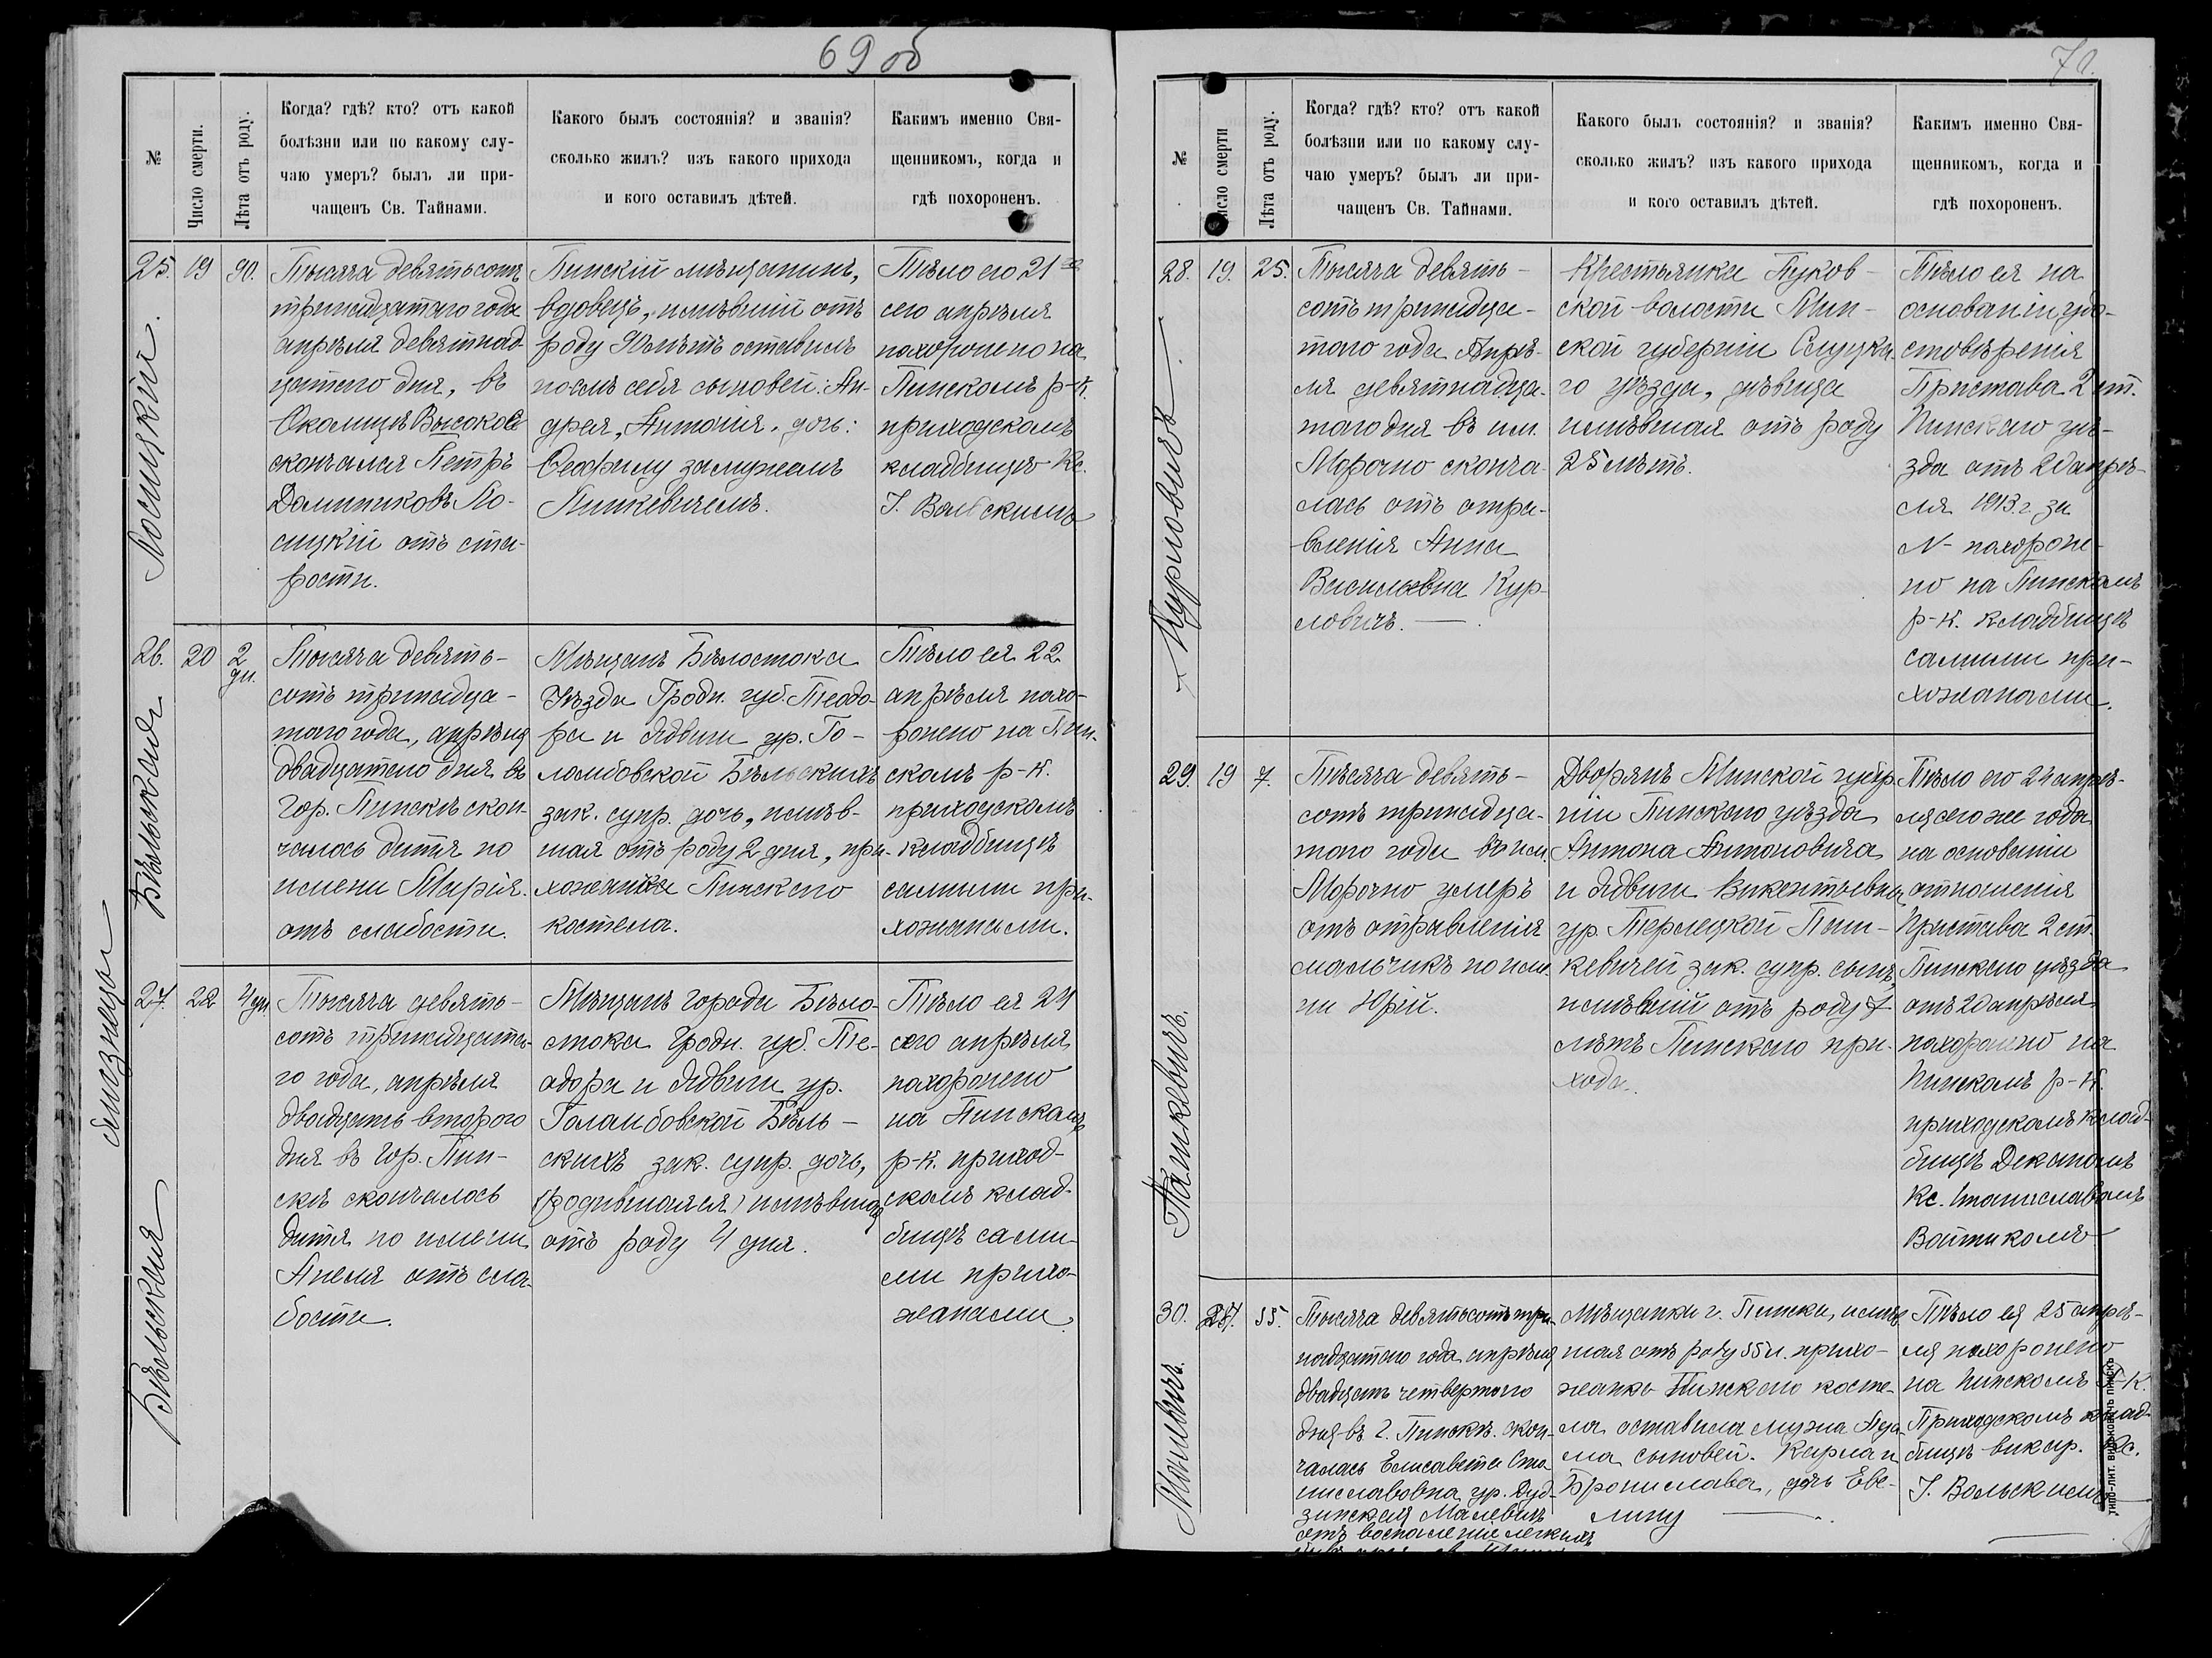 69 об
№
Число смерти.
Лѣта отъ роду.
Когда? гдѣ? кто? отъ какой
болѣзни или по какому слу-
чаю умеръ? былъ ли при-
чащенъ Св. Тайнами.
Какого былъ состоянія? и званія?
сколько жилъ? изъ какого прихода
и кого оставилъ дѣтей.
Какимъ именно Свя-
щенникомъ, когда и
гдѣ похороненъ.
Лосицкій.
25. 19 90.
Тысяча девятьсотъ
тринадцатаго года
апрѣля девятнад-
цатаго дня, въ
Околицѣ Высокое
скончался Петръ
Доминиковъ Ло-
сицкій отъ ста-
рости.
Пинскій мѣщанинъ,
вдовецъ, имѣвшій отъ
роду 90 лѣтъ оставилъ
послѣ себя сыновей: Ан-
дрея, Антонія, дочь:
Теофилу замужемъ
Пинкевичемъ.
Тѣло его 21 го
сего апрѣля
похоронено на
Пинскомъ р-к.
приходскомъ
кладбищѣ Кс.
І. Вольскимъ
Бѣльская
близнецы
26. 20 2
дн.
Тысяча девять-
сотъ тринадца-
таго года, апрѣля
двадцатаго дня въ
гор. Пинскѣ скон-
чалось дитя по
имени Марія
отъ слабости.
Мѣщанъ Бѣлостока
Уѣзда Гродн. губ. Теодо-
ра и Ядвиги ур. Го-
ломбовской Бѣльскихъ
зак. супр. дочь, имѣв-
шая отъ роду 2 дня, при-
хожанка Пинскаго
костела.
Тѣло ея 22
апрѣля похо-
ронено на Пин-
скомъ р-к.
приходскомъ
кладбищѣ
самими при-
хожанами.
Бѣльская
27. 22 4 дн.
Тысяча девять-
сотъ тринадцата-
го года, апрѣля
двадцать второго
дня въ гор. Пин-
скѣ скончалось
дитя по имени
Анеля отъ сла-
бости.
Мѣщанъ города Бѣло-
стока Гродн. губ. Те-
одора и Ядвиги ур.
Голомбовской Бѣль-
скихъ зак. супр. дочь,
(родившаяся) имѣвшая
отъ роду 4 дня.
Тѣло ея 24
сего апрѣля
похоронено
на Пинскомъ
р-к. приход-
скомъ клад-
бищѣ сами-
ми прихо-
жанами.
70.
№
Число смерти
Лѣта отъ роду.
Когда? гдѣ? кто? отъ какой
болѣзни или по какому слу-
чаю умеръ? былъ ли при-
чащенъ Св. Тайнами.
Какого былъ состоянія? и званія?
сколько жилъ? изъ какого прихода
и кого оставилъ дѣтей.
Какимъ именно Свя-
щенникомъ, когда и
гдѣ похороненъ.
Курловичъ
28. 19. 25.
Тысяча девять-
сотъ тринадца-
таго года Апрѣ-
ля девятнадца-
таго дня въ им.
Морочно сконча-
лась отъ отра-
вленія Анна
Васильевна Кур-
ловичъ.
Крестьянка Пуков-
ской волости Мин-
ской губерніи Слуцка-
го уѣзда, дѣвица
имѣвшая отъ роду
25 лѣтъ.
Тѣло ея на
основаніи удо-
стовѣренія
Пристава 2 ст.
Пинскаго уѣ-
зда отъ 20 апрѣ-
ля 1913 г. за
N- похороне-
но на Пинскомъ
р-к. кладбищѣ
самими при-
хожанами.
Панкевичъ.
29. 19 7.
Тысяча девять-
сотъ тринадца-
таго года въ им.
Морочно умеръ
отъ отравленія
мальчикъ по име-
ни Юрій.
Дворянъ Минской губер-
ніи Пинскаго уѣзда
Антона Антоновича
и Ядвиги Викентьевны
ур. Терлецкой Пан-
кевичей зак. супр. сынъ,
имѣвшій отъ роду 7
лѣтъ Пинскаго при-
хода.
Тѣло его 24 апрѣ-
ля сего же года
на основаніи
отношенія
Пристава 2 ст.
Пинскаго уѣзда
отъ 20 апрѣля
похоронено на
Пинскомъ р-к.
приходскомъ клад-
бищѣ Деканомъ
Кс. Станиславомъ
Войтикомъ
Малевичъ.
30. 24. 55.
Тысяча девятьсотъ три-
надцатаго года апрѣля
двадцать четвертаго
дня въ г. Пинскѣ скон-
чалась Елисавета Ста-
ниславовна ур. Дуд-
зинская Малевичъ
отъ воспаленія легкихъ
Мѣщанки г. Пинска, имѣв-
шая отъ роду 55 л. прихо-
жанка Пинскаго косте-
ла оставила мужа Ада-
ма сыновей. Карла и
Бронислава, дочь Еве-
лину
Тѣло ея 25 апрѣ-
ля похоронено
на Пинскомъ Р-К.
Приходскомъ клад-
бищѣ викар. Кс.
І. Вольскимъ
типо-лит. виловичъ пинскъ